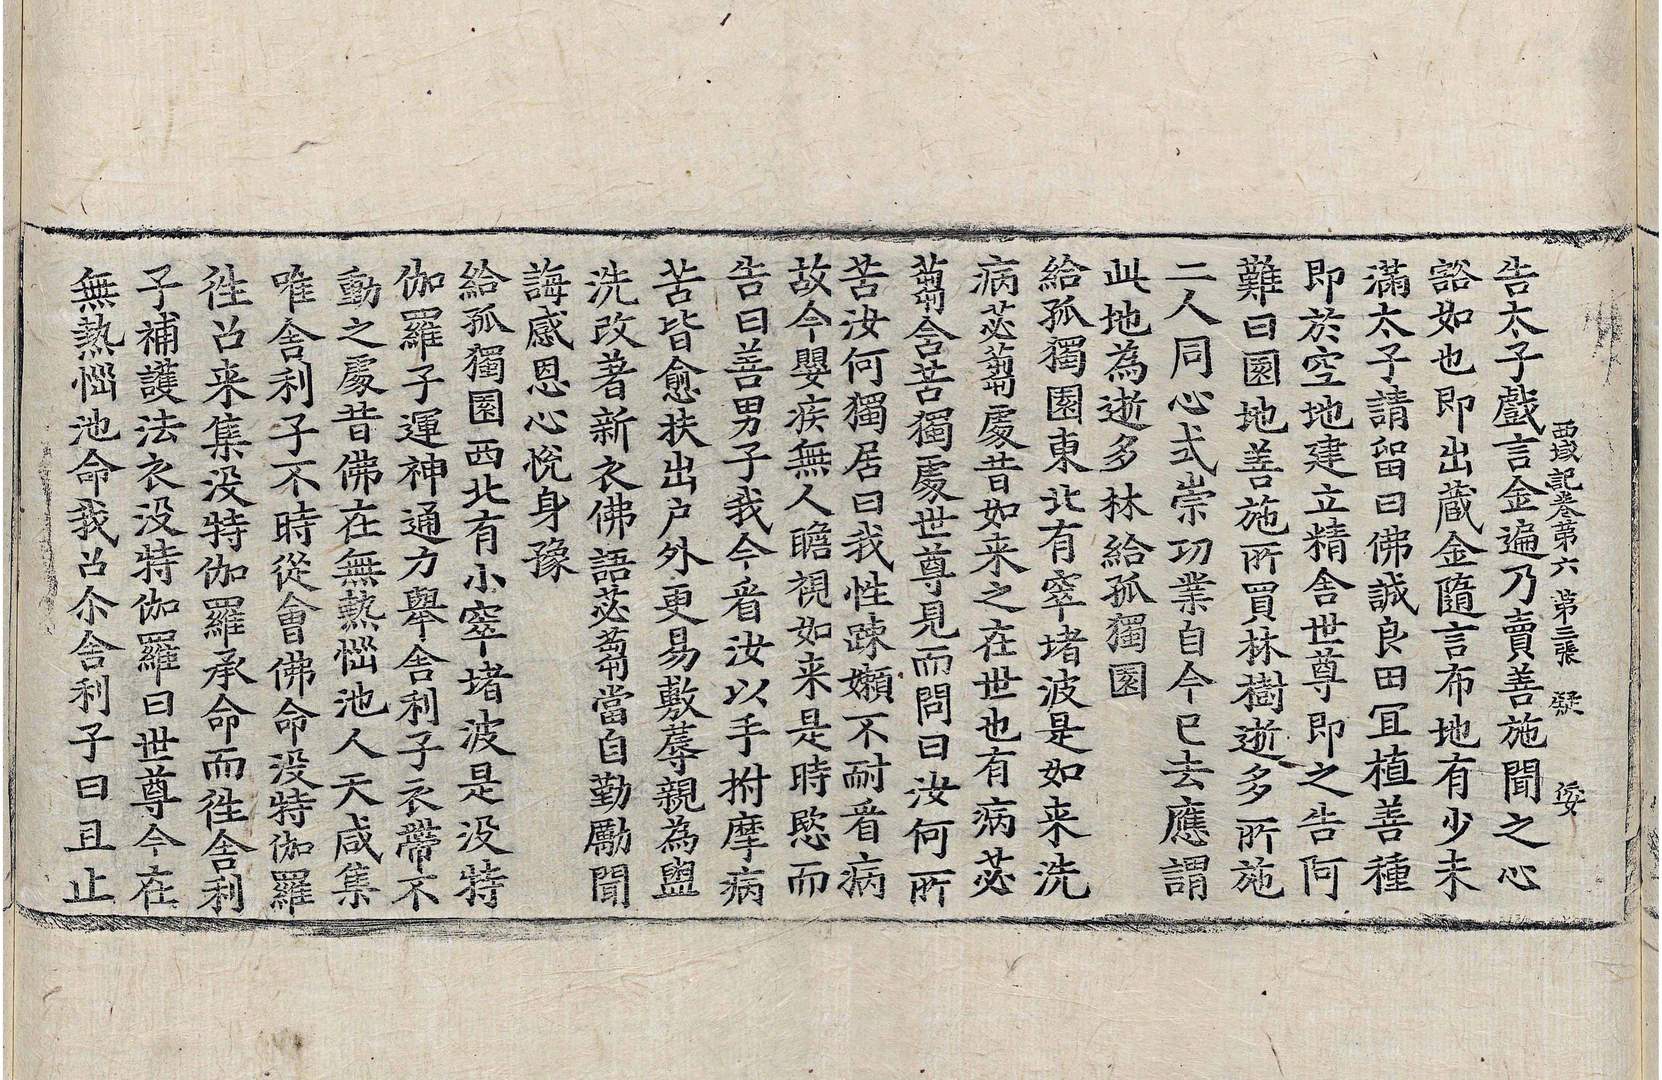 西域記卷第六 第三張 發 㛐
告太子戲言金遍乃賣善施聞之心
豁如也即出藏金隨言布地有少未
滿太子請留曰佛誠良田冝植善種
即於空地建立精舍世尊即之告阿
難曰園地善施所買林樹逝多所施
二人同心式崇功業自今已去應謂
此地為逝多林給孤獨園
給孤獨園東北有窣堵波是如来洗
病苾蒭處昔如来之在世也有病苾
蒭含苦獨處世尊見而問曰汝何所
苦汝何獨居曰我性踈嬾不耐看病
故今嬰疾無人瞻視如来是時愍而
告曰善男子我今看汝以手拊摩病
苦皆愈扶出戶外更易敷蓐親為盥
洗改著新衣佛語苾蒭當自勤勵聞
誨感恩心悅身豫
給孤獨園西北有小窣堵波是没特
伽羅子運神通力舉舍利子衣帶不
動之處昔佛在無熱惱池人天咸集
唯舍利子不時從會佛命没特伽羅
徃召来集没特伽羅承命而徃舍利
子補護法衣没特伽羅曰世尊今在
無熱惱池命我召尒舍利子曰且止